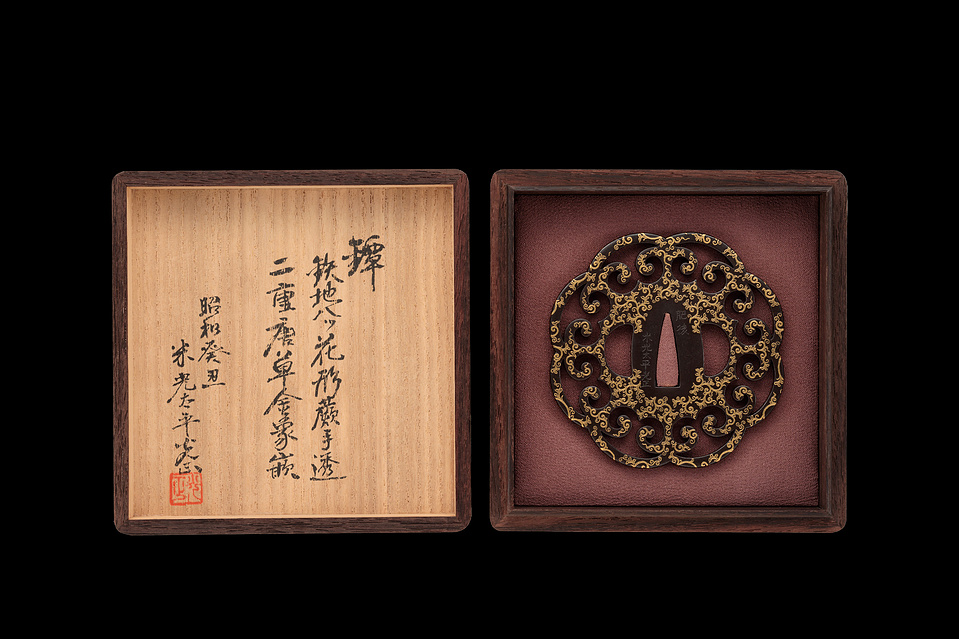 鐔
鉄地八ツ花形蕨手透
二重唐草金象嵌
昭和癸丑
米光太平光正
肥後
米光太平